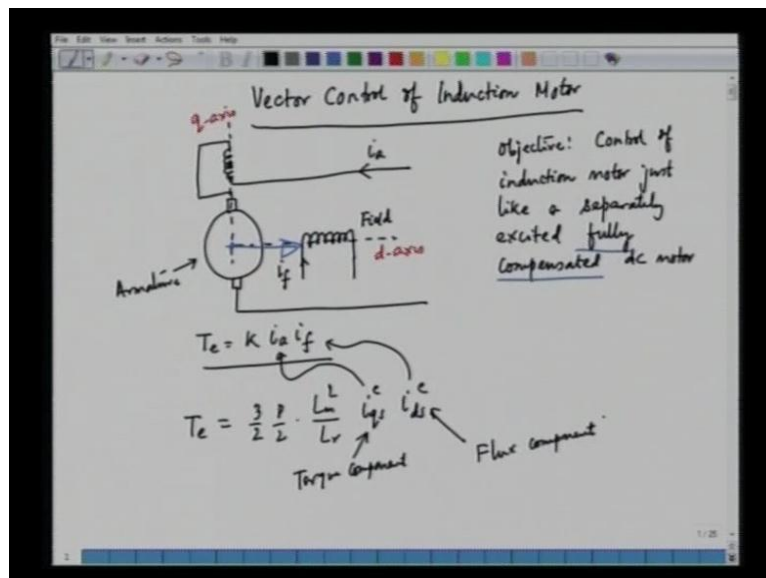 File Edit View Insert Actions Tools Help
Vector Control of Induction Motor
q-axis
ia
Objective: Control of
induction motor just
like a separately
excited fully
compensated dc motor
Field
d-axis
if
Armature
Te = K ia if
Te = 3/2 P/2 · Lm²/Lr iqs^e ids^e
Torque Component
Flux component
1/25